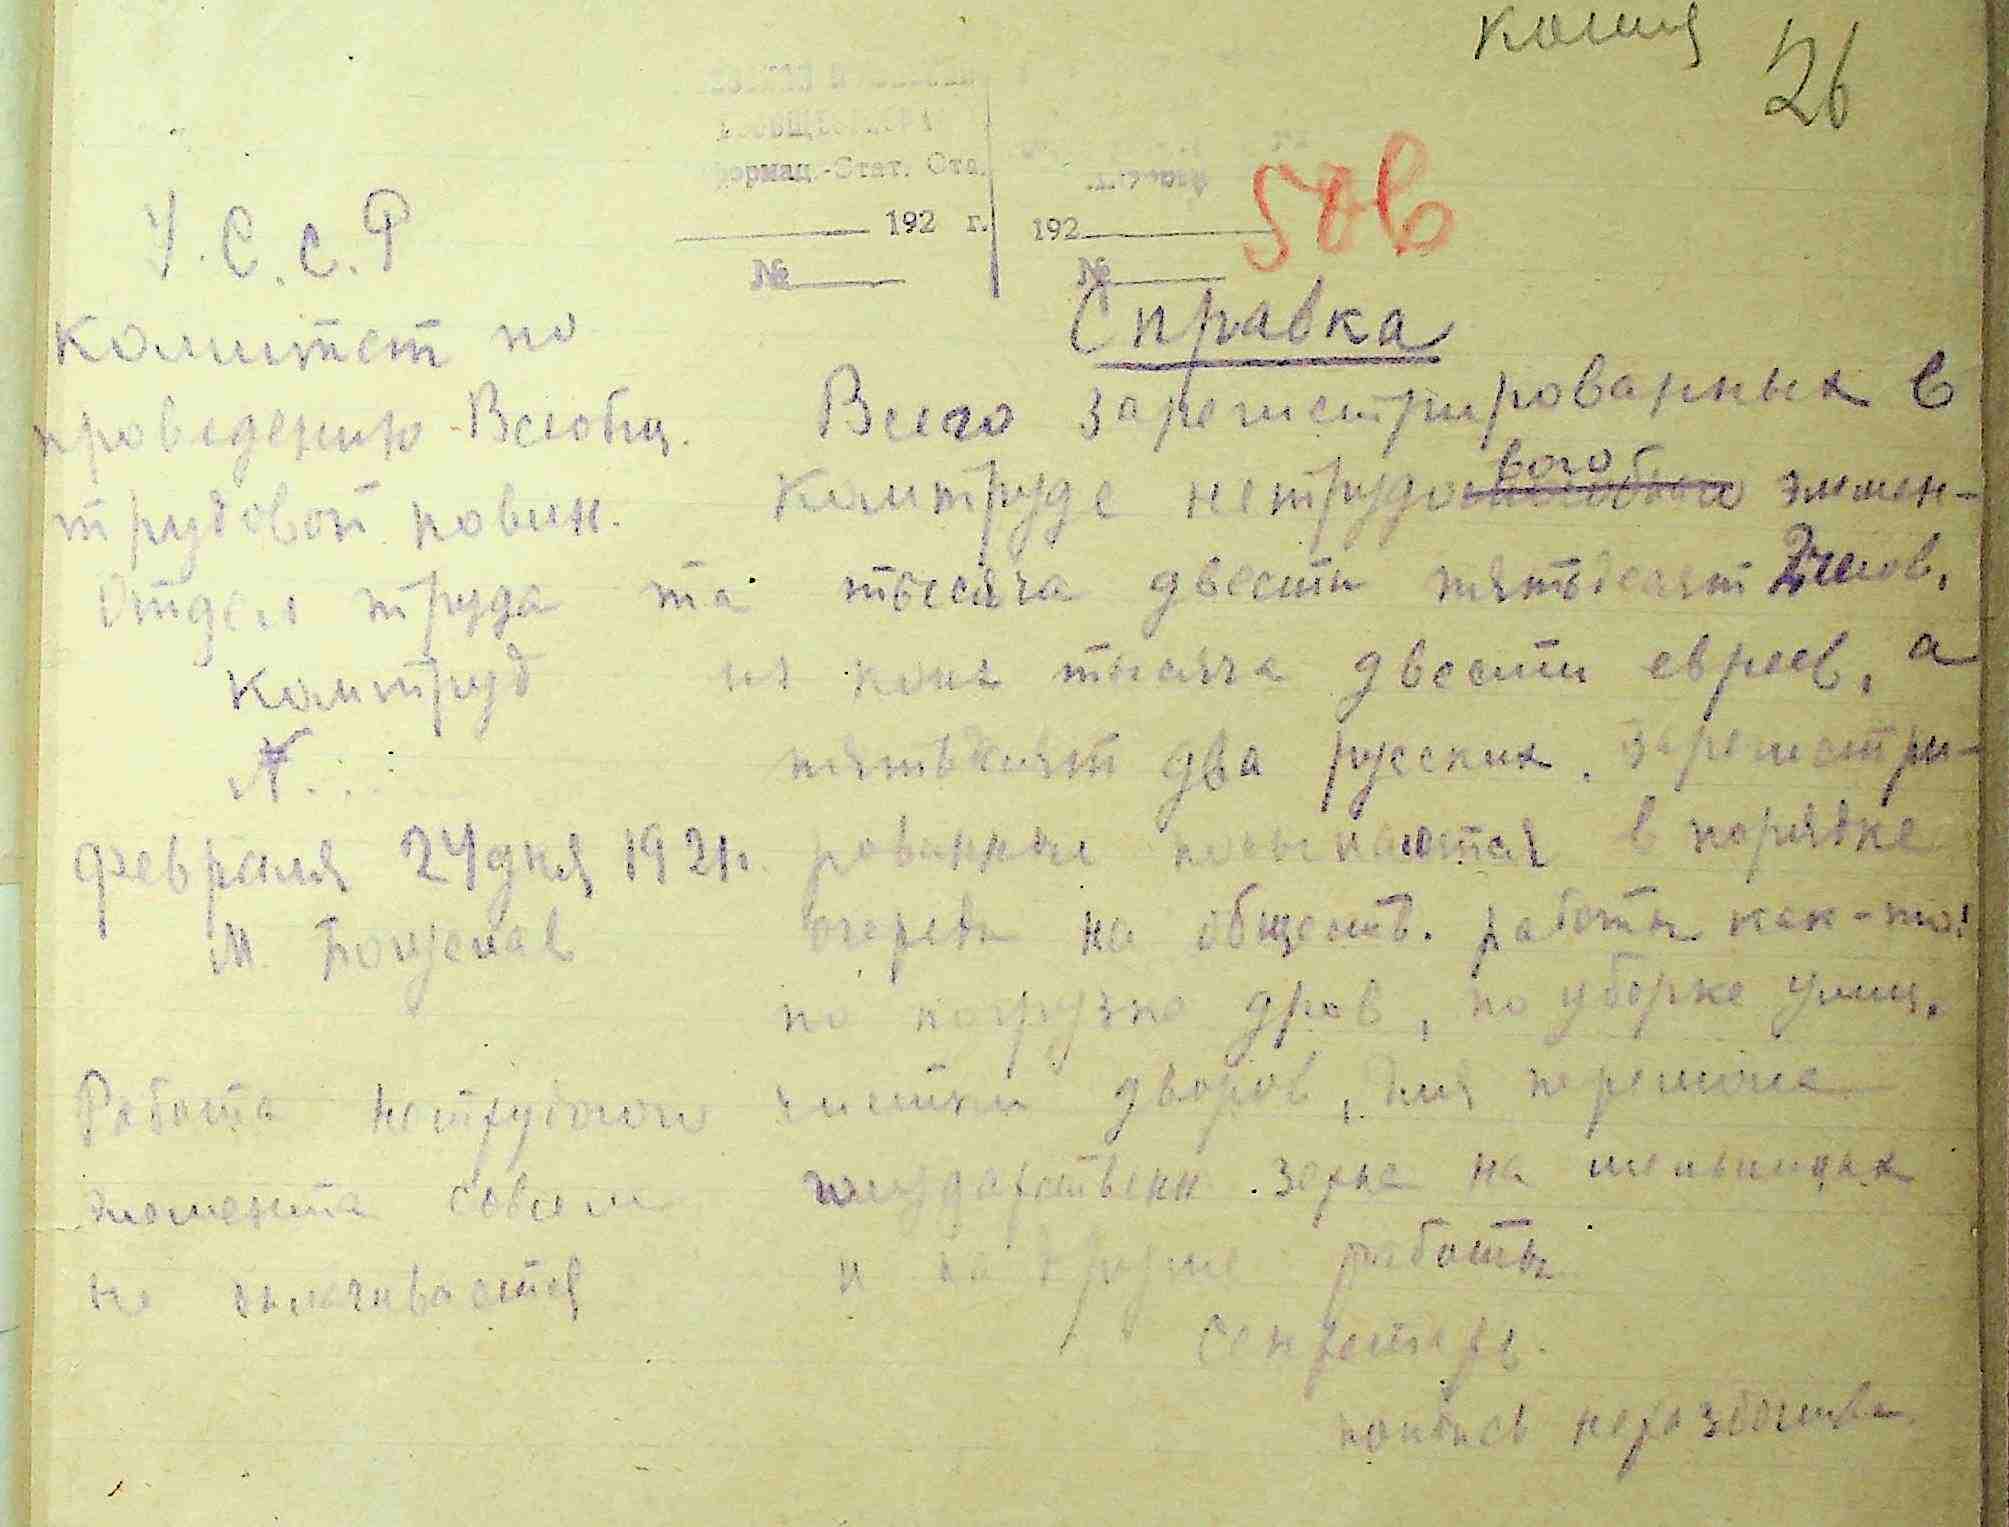 копия
26
формац.-Стат. Отд.
192 г.
№
192
№
506
У.С.С.Р
Комитет по
проведению Всеобщ.
трудовой повин.
Отдел труда
Комтруд
N
февраля 24 дня 1921 г.
М.
Работа нетрудового
элемента совсем
не оплачивается
Справка
Всего зарегистрированных в
Комтруде нетрудового элемен-
та тысяча двести пятьдесят 2 челов.
из коих тысяча двести евреев, а
пятьдесят два русских. Зарегистри-
рованные посылаются в порядке
очереди на обществ. работы как-то:
по погрузке дров, по уборке улиц,
чистки дворов, для перемола
государственн. зерна на мельницах
и на другие работы
Секретарь.
подпись неразборчива